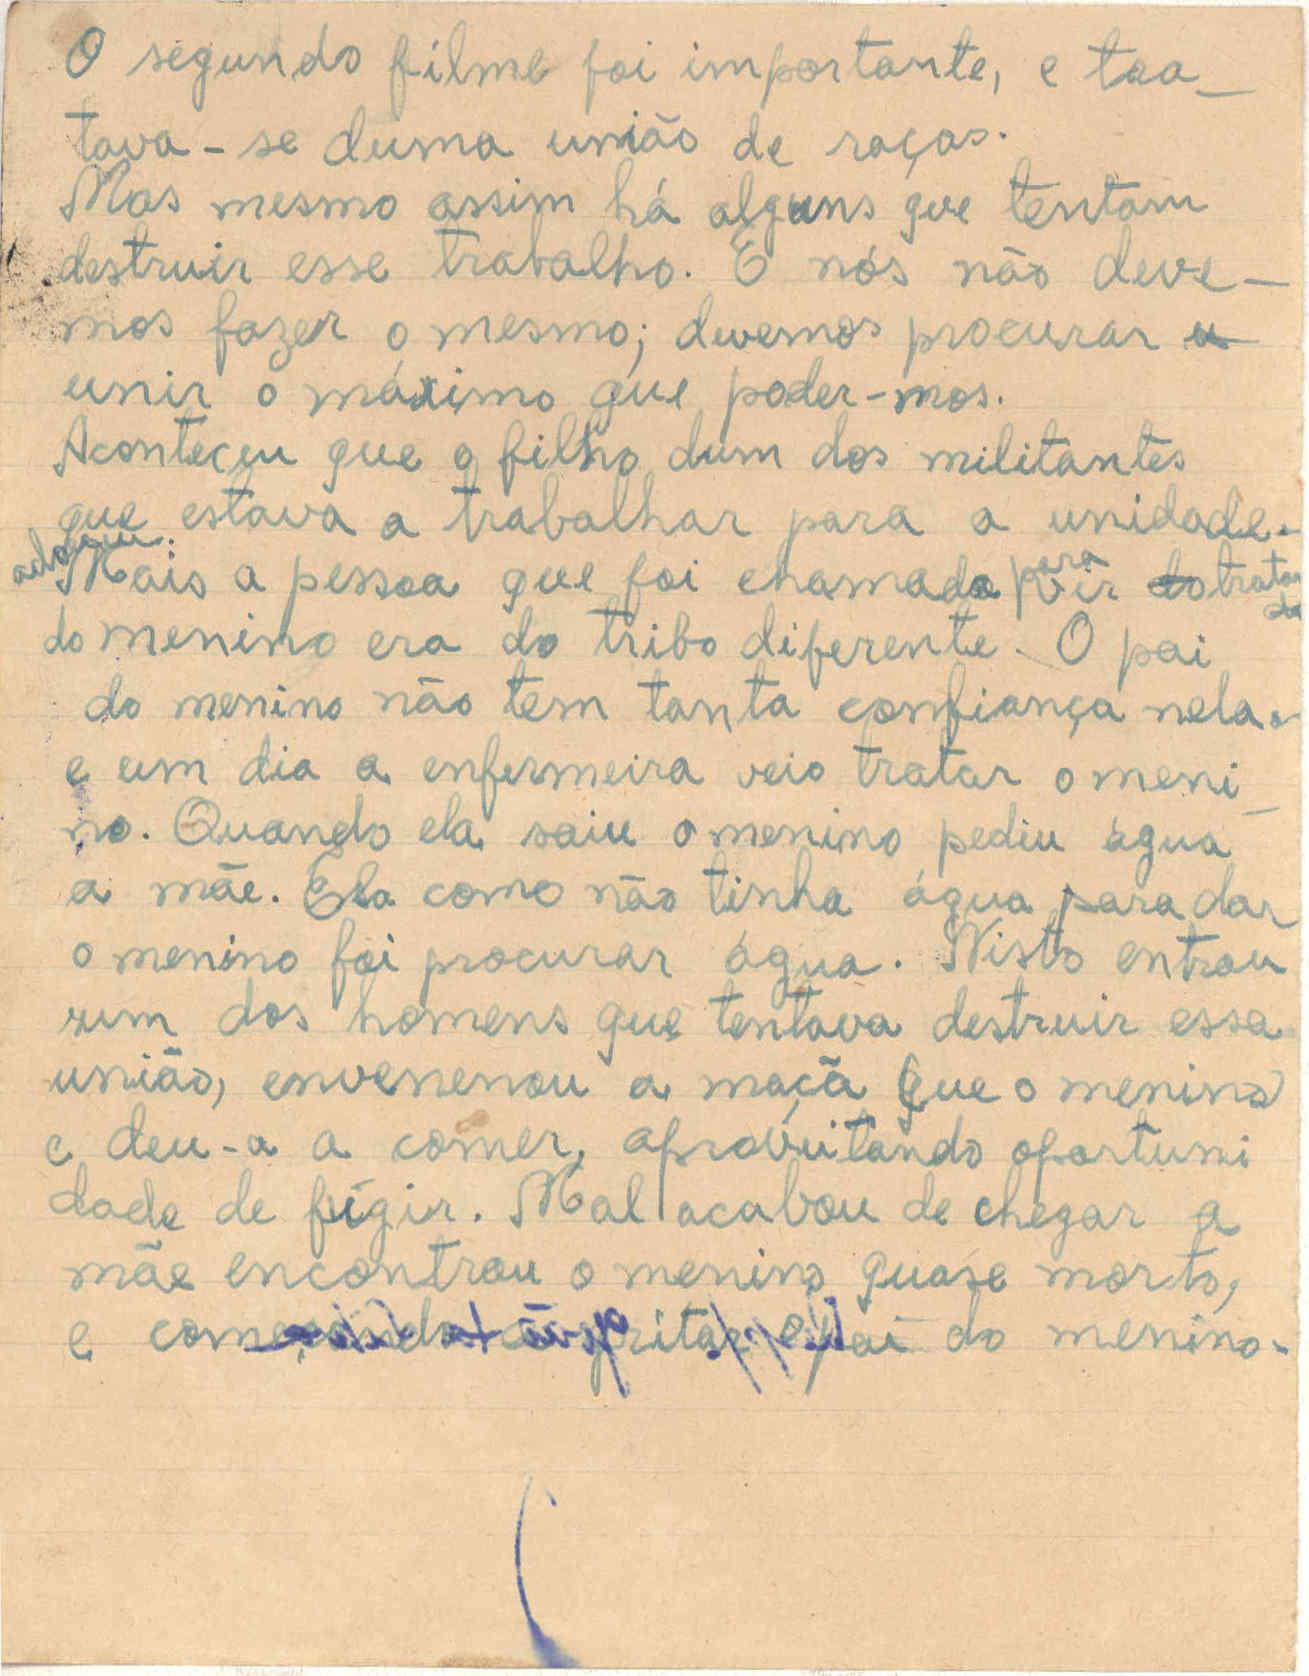 O segundo filme foi importante, e tra_
tava-se duma união de raças.
Mas mesmo assim há alguns que tentam
destruir esse trabalho. E nós não deve-
mos fazer o mesmo; devemos procurar u
unir o máximo que poder-mos.
Aconteceu que o filho dum dos militantes
que estava a trabalhar para a unidade.
adoeceu.
Mais a pessoa que foi chamada para vir tratar
do menino era do tribo diferente. O pai
do menino não tem tanta confiança nela.
e um dia a enfermeira veio tratar o meni_
no. Quando ela saiu o menino pediu água
a mãe. Ela como não tinha água para dar
o menino foi procurar água. Nisto entrou
um dos homens que tentava destruir essa
união, envenenou a maçã que o menino
e deu-a a comer, aproveitando oportuni
dade de fugir. Mal acabou de chegar a
mãe encontrou o menino quase morto,
e começando a gritar o pai do menino.